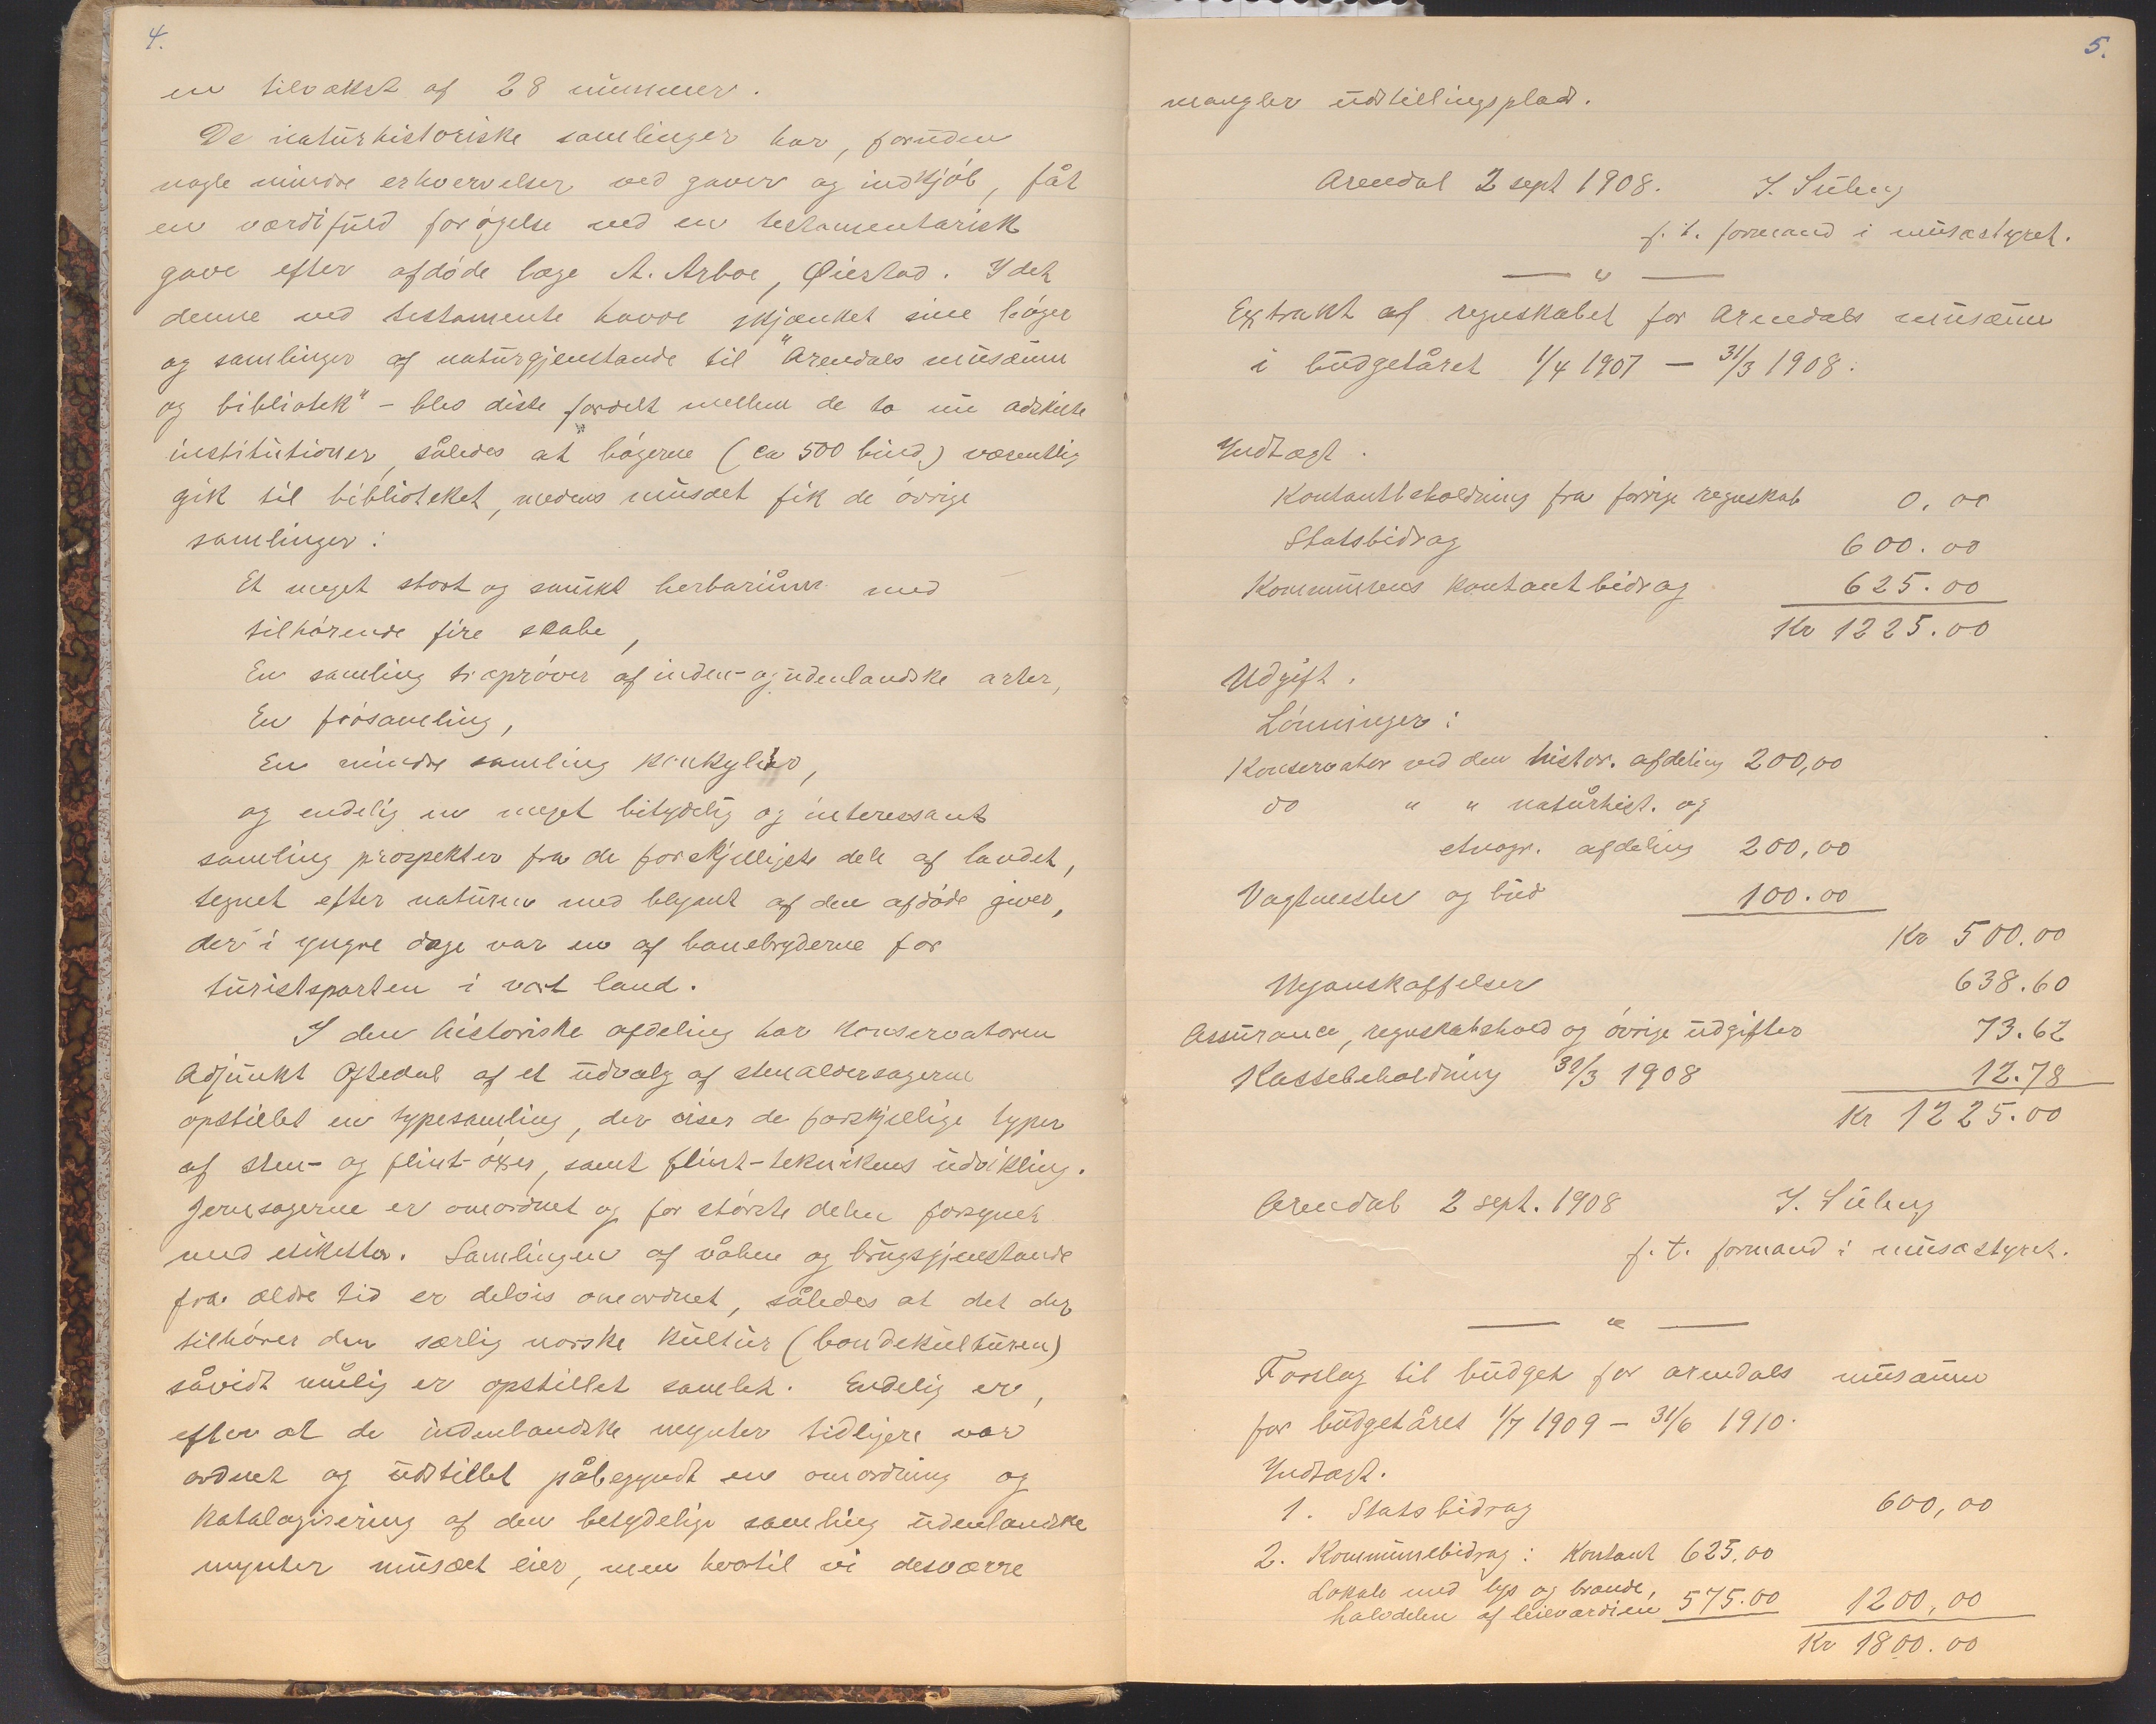 4.
en tilvækst af 28 nummer.
De naturhistoriske samlinger har, foruden
nogle mindre erhvervelser ved gaver og indkjöb, fåt
en værdifuld forögelse ved en testamentarisk
gave efter afdöde læge A. Arboe, Øiestad. Idet
denne ved testamente havde skjænket sine böger
og samlinger af naturgjenstande til "Arendals musæum
og bibliotek" – blev disse fordelt mellem de to nu adskilte
institutioner, således at bögerne (ca 500 bind) væsentlig
gik til biblioteket, medens musæet fik de övrige
samlinger:
Et meget stort og smukt herbarium med
tilhörende fire skabe,
En samling træpröver af inden- og udenlandske arter,
En frösamling,
En mindre samling konkylier,
og endelig en meget betydelig og interessant
samling prospekter fra de forskjelligste dele af landet,
tegnet efter naturen med blyant af den afdöde giver,
der i yngre dage var en af banebryderne for
turistsporten i vort land.
I den historiske afdeling har konservatoren
Adjunkt Oftedal af et udvalg af stenaldersagerne
opstillet en typesamling, der viser de forskjellige typer
af sten- og flint-öxer, samt flint-teknikens udvikling.
Jernsagerne er omordnet og for störste delen forsynet
med etiketter. Samlingen af våben og brugsgjenstande
fra ældre tid er delvis omordnet, således at det der
tilhörer den særlig norske kultur (bondekulturen)
såvidt mulig er opstillet samlet. Endelig er,
efter at de indenlandske mynter tidligere var
ordnet og udstillet påbegyndt en omordning og
katalogisering af den betydelige samling udenlandske
mynter musæet eier, men hvortil vi desværre
5.
mangler udstillingsplads.
Arendal 2 sept 1908. J. Süleng
f. t. formand i musæstyret.
— " —
Extrakt af regnskabet for Arendals musæum
i budgetåret 1/4 1907 – 31/3 1908.
Indtægt.
Kontantbeholdning fra forrige regnskab 0.00
Statsbidrag 600.00
Kommunens kontantbidrag 625.00
Kr 1225.00
Udgift.
Lönninger:
Konservator ved den histor. afdeling 200,00
do " " naturhist. og
etnogr. afdeling 200,00
Vagtmester og bud 100.00
Kr 500.00
Nyanskaffelser 638.60
Assurance, regnskabshold og övrige udgifter 73.62
Kassebeholdning 31/3 1908 12.78
Kr 1225.00
Arendal 2 sept. 1908 J. Süleng
f. t. formand i musæstyret.
— " —
Forslag til budget for arendals musæum
for budgetåret 1/7 1909 – 31/6 1910.
Indtægt.
1. Statsbidrag 600,00
2. Kommunebidrag: Kontant 625,00
Lokale med lys og brænde,
halvdelen af leieværdien 575.00 1200,00
Kr 1800.00